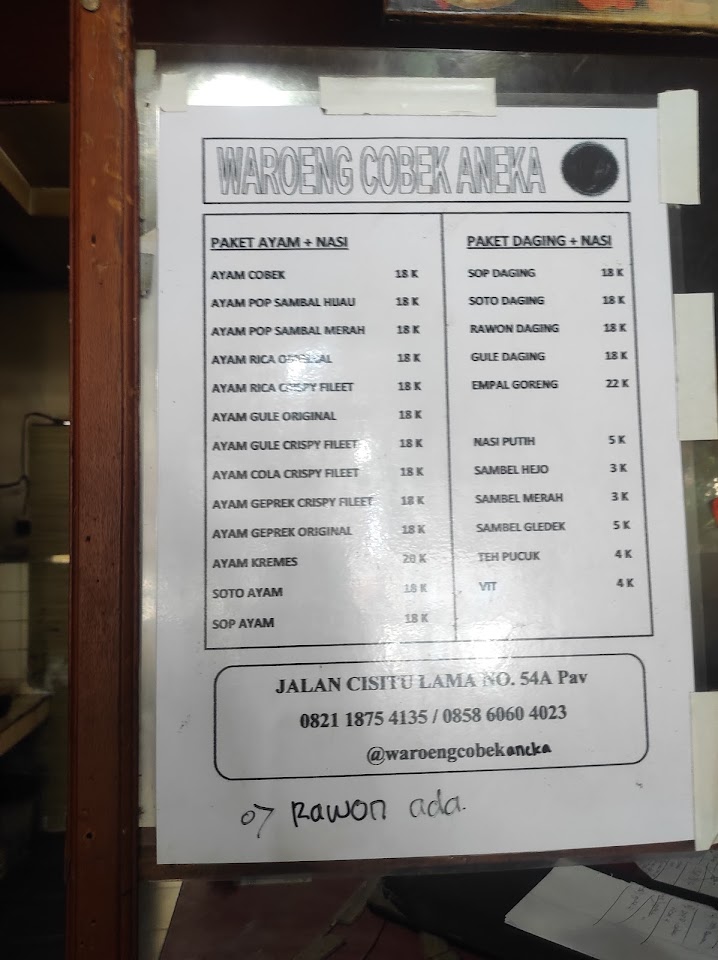 WAROENG COBEK ANEKA
PAKET AYAM + NASI
AYAM COBEK 18 K
AYAM POP SAMBAL HIJAU 18 K
AYAM POP SAMBAL MERAH 18 K
AYAM RICA 18 K
AYAM RICA CRISPY FILEET 18 K
AYAM GULE ORIGINAL 18 K
AYAM GULE CRISPY FILEET 18 K
AYAM COLA CRISPY FILEET 18 K
AYAM GEPREK CRISPY FILEET 18 K
AYAM GEPREK ORIGINAL 18 K
AYAM KREMES 20 K
SOTO AYAM 18 K
SOP AYAM 18 K
PAKET DAGING + NASI
SOP DAGING 18 K
SOTO DAGING 18 K
RAWON DAGING 18 K
GULE DAGING 18 K
EMPAL GORENG 22 K
NASI PUTIH 5 K
SAMBEL HEJO 3 K
SAMBEL MERAH 3 K
SAMBEL GLEDEK 5 K
TEH PUCUK 4 K
VIT 4 K
JALAN CISITU LAMA NO. 54A Pav
0821 1875 4135 / 0858 6060 4023
@waroengcobekaneka
Rawon ada.